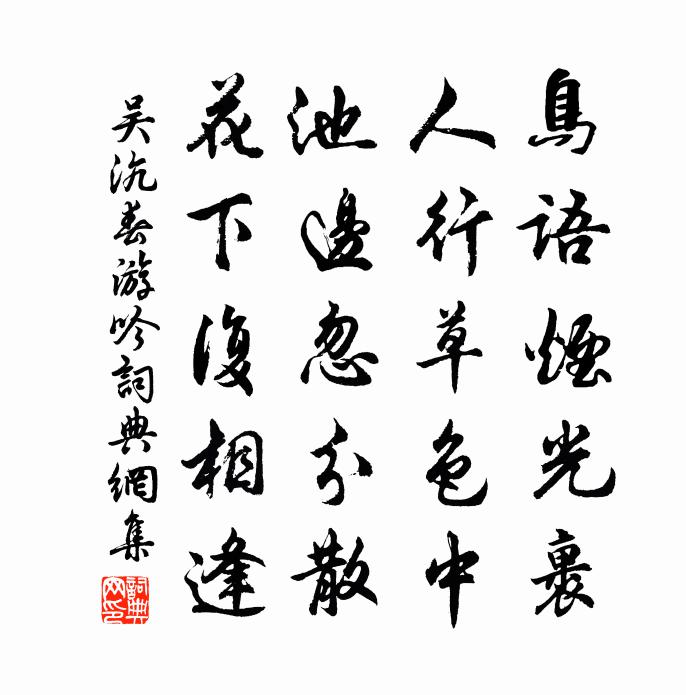 鳥語煙光裏
人行草色中
池邊忽分散
花下復相逢
吳沆春游吟詞典網集
詞典網印